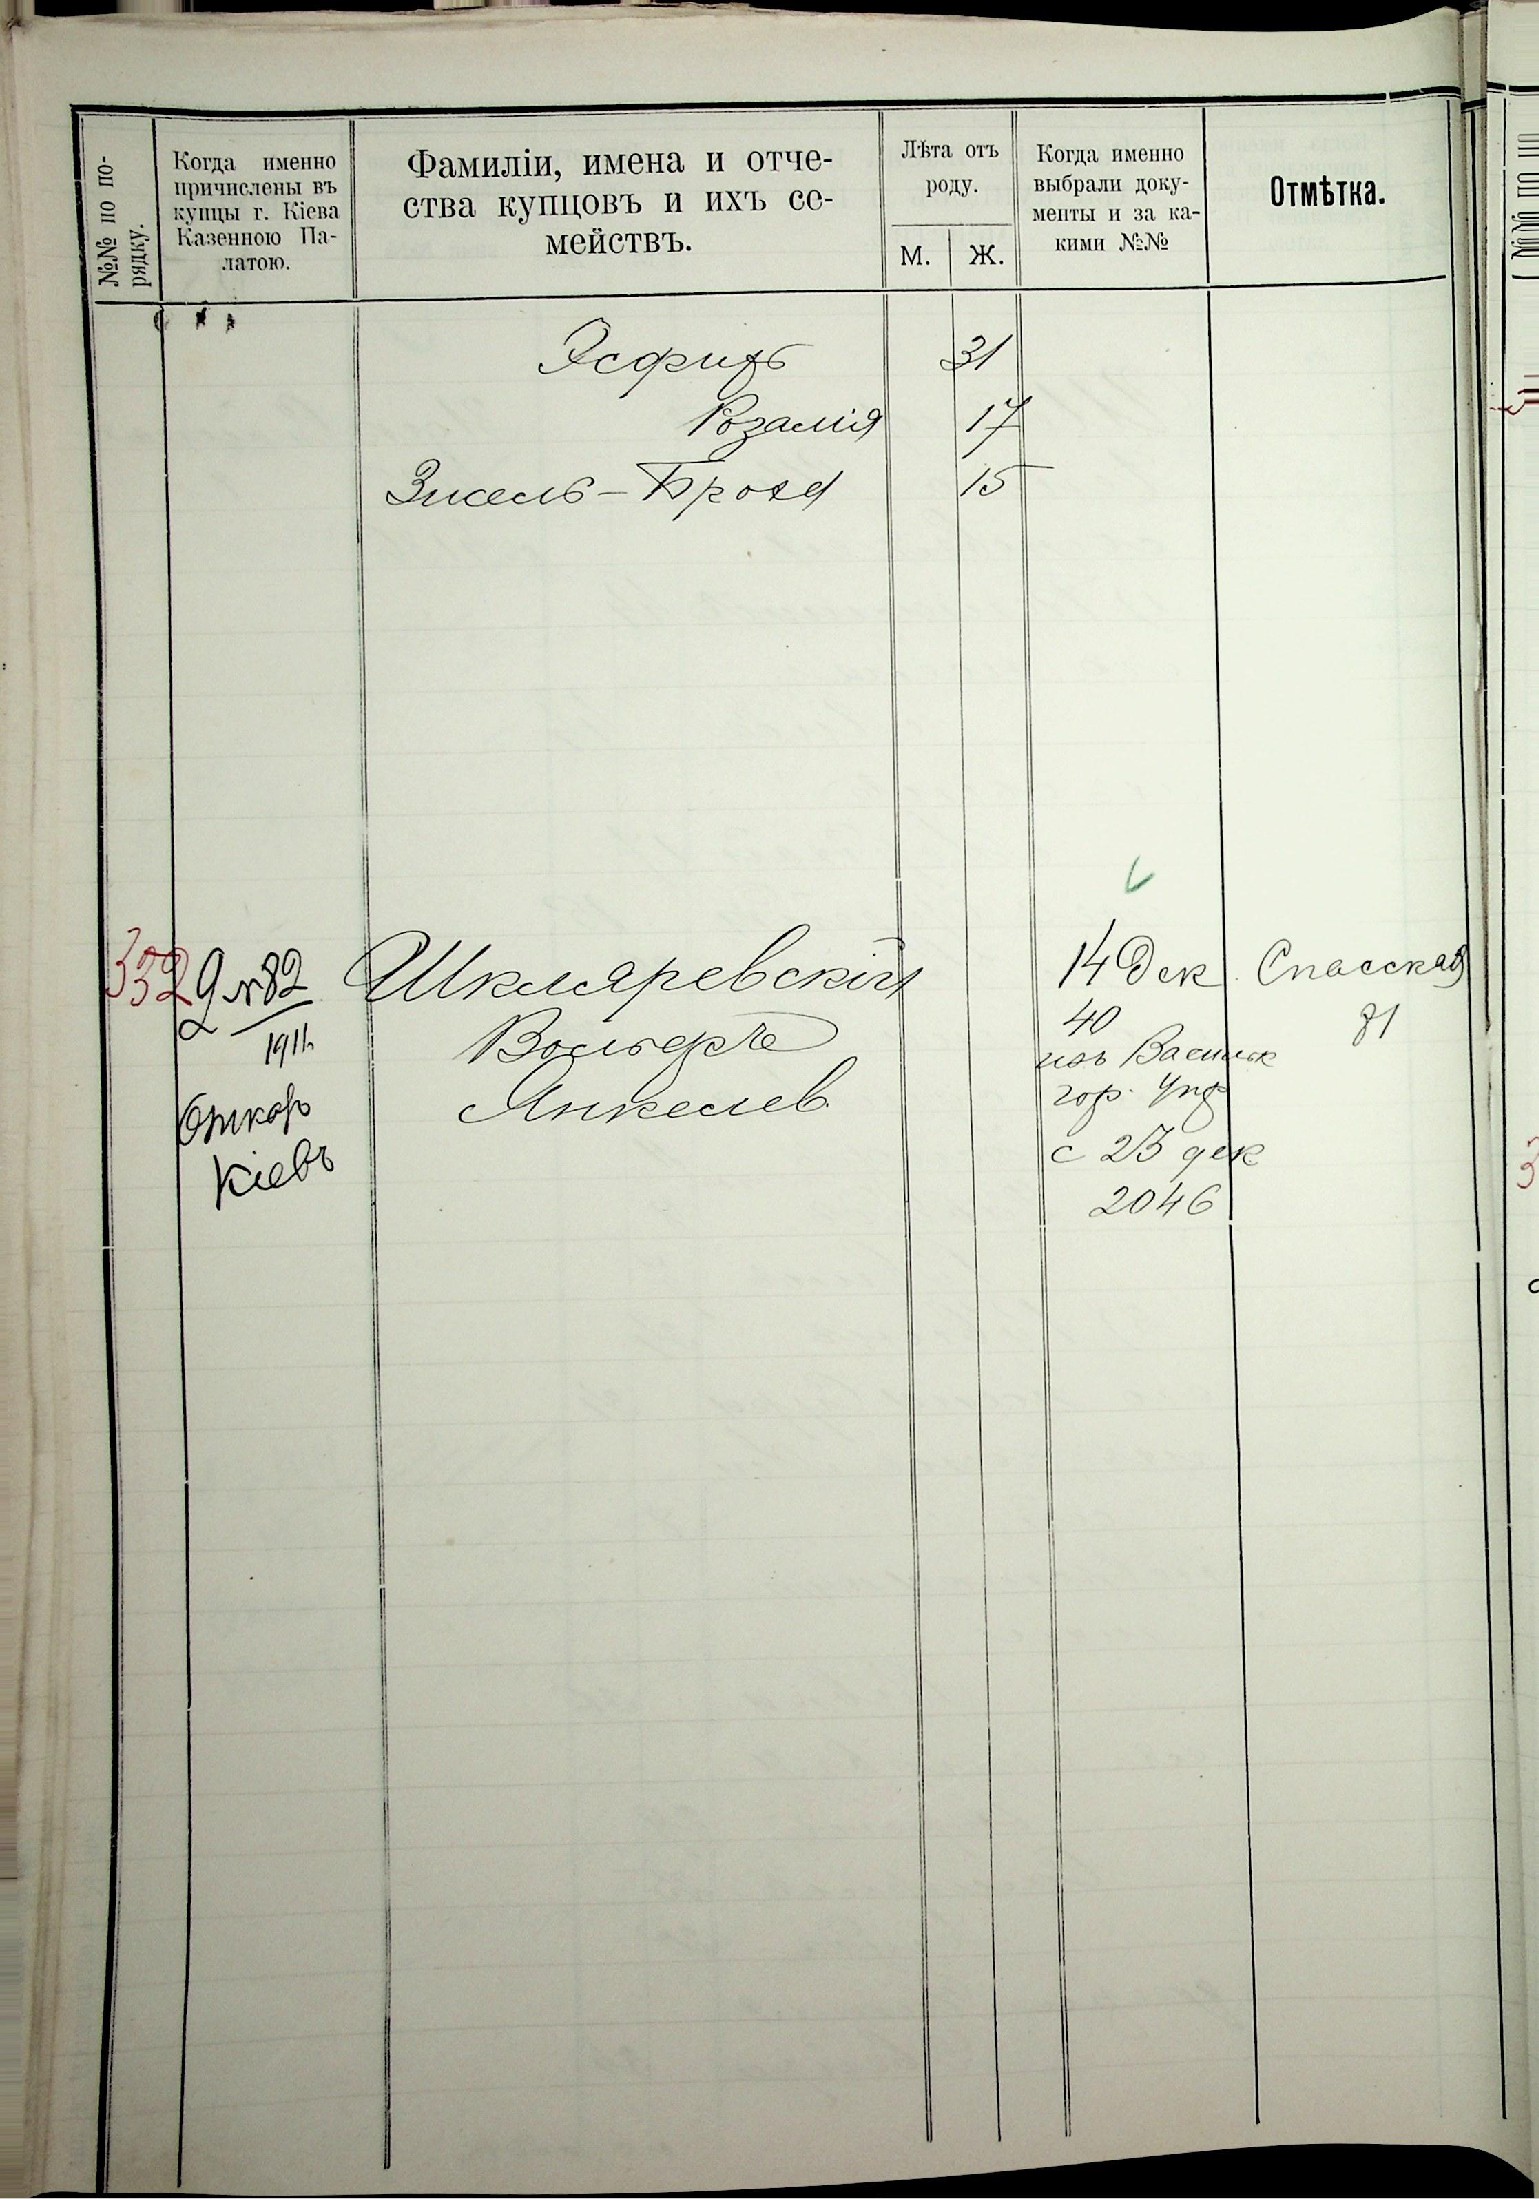 №№ по по-
рядку.
Когда именно
причислены въ
купцы г. Кіева
Казенною Па-
латою.
Фамиліи, имена и отче-
ства купцовъ и ихъ се-
мействъ.
Лѣта отъ
роду.
М. Ж.
Когда именно
выбрали доку-
менты и за ка-
кими №№
Отмѣтка.
Эсфирь 31
Розалія 17
Зисель-Броха 15
332
2 №82
1911
Кіевъ
Шкляревскій
Вольфъ
Янкелев
14 Дек
40
изъ Васильк
гор. Упр
с 23 дек
2046
Спасская
81